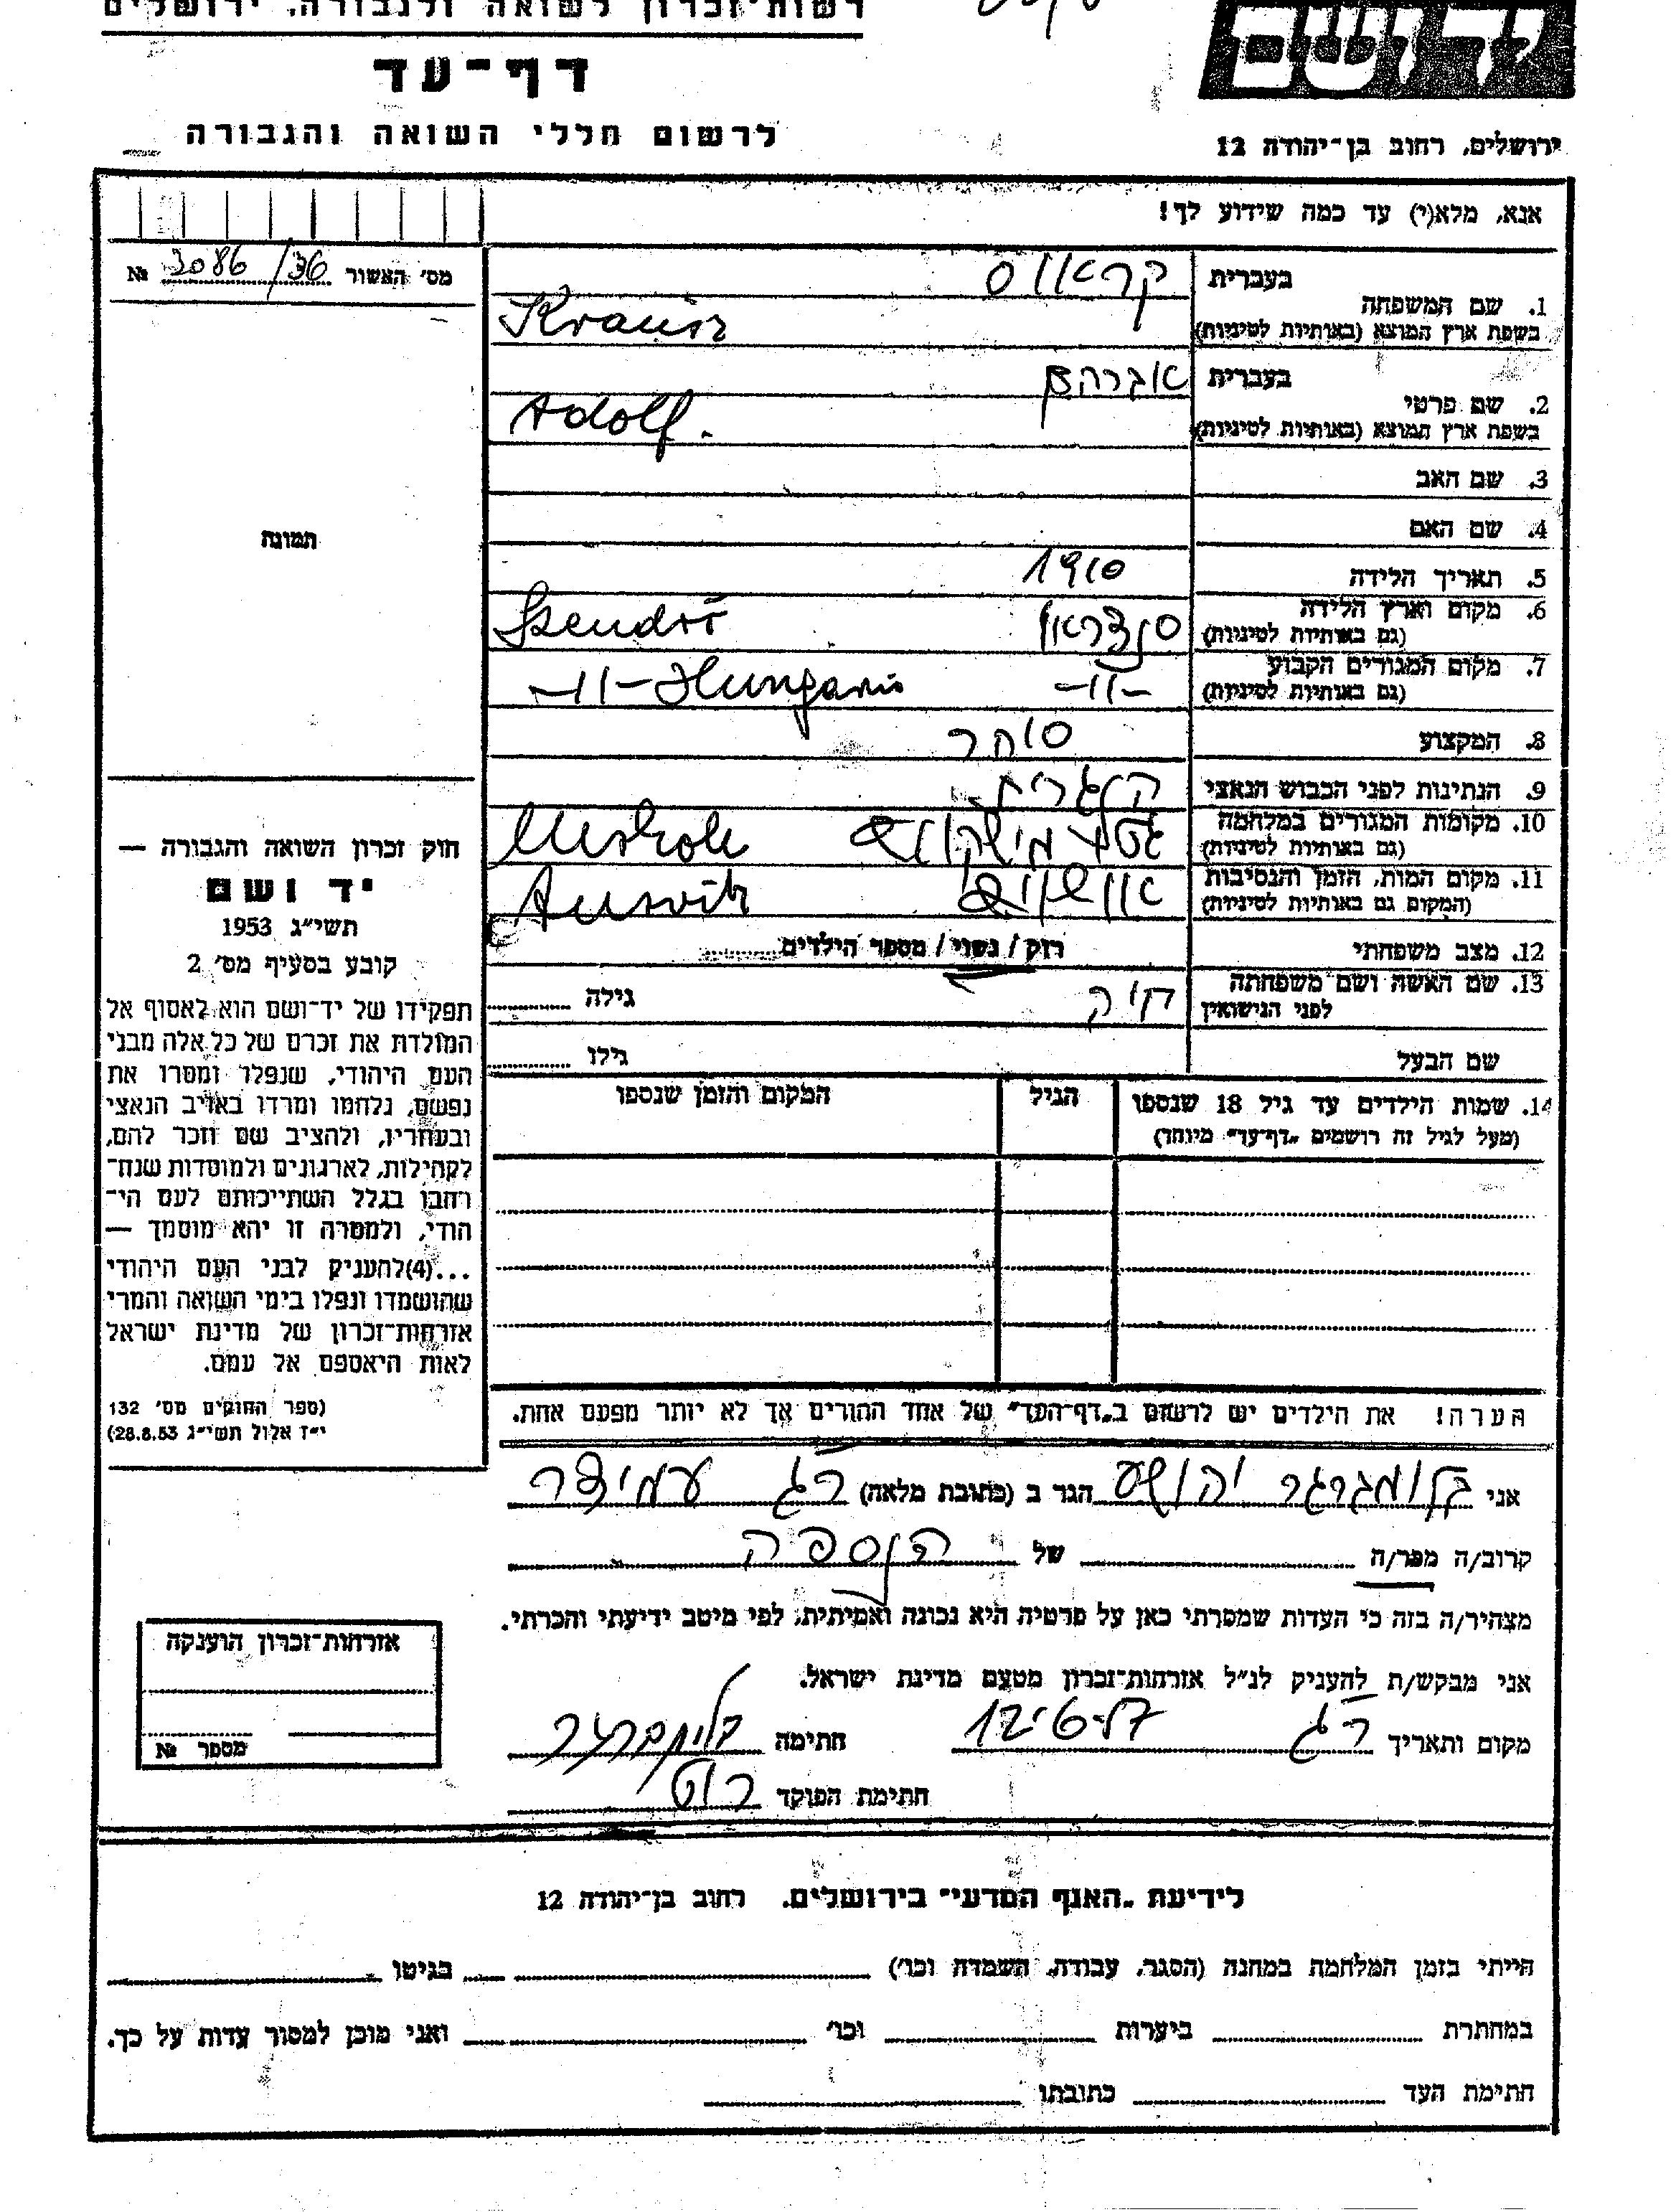 רשות־זכרון לשואה ולגבורה, ירושלים
יד ושם
דף־עד
לרשום חללי השואה והגבורה
ירושלים, רחוב בן־יהודה 12
אנא, מלא(י) עד כמה שידוע לך!
מס׳ האשור 3086/36 №
בעברית קראוס
1. שם המשפחה
בשפת ארץ המוצא (באותיות לטיניות) Krausz
בעברית אברהם
2. שם פרטי
בשפת ארץ המוצא (באותיות לטיניות) Adolf.
3. שם האב
4. שם האם
תמונה
5. תאריך הלידה 1910
6. מקום וארץ הלידה
(גם באותיות לטיניות) Szendrő
7. מקום המגורים הקבוע
(גם באותיות לטיניות) -״- -11- Hungaria
8. המקצוע סוחר
9. הנתינות לפני הכבוש הנאצי הונגרית
10. מקומות המגורים במלחמה
(גם באותיות לטיניות) גטו מישקולץ
11. מקום המות, הזמן והנסיבות
(המקום גם באותיות לטיניות) אושויץ
12. מצב משפחתי רווק / נשוי / מספר הילדים
13. שם האשה ושם משפחתה
לפני הנישואין חיה גילה
שם הבעל גילו
14. שמות הילדים עד גיל 18 שנספו הגיל המקום והזמן שנספו
(מעל לגיל זה רושמים „דף־עד״ מיוחד)
חוק זכרון השואה והגבורה —
יד ושם
תשי״ג 1953
קובע בסעיף מס׳ 2
תפקידו של יד־ושם הוא לאסוף אל
המולדת את זכרם של כל אלה מבני
העם היהודי, שנפלו ומסרו את
נפשם, נלחמו ומרדו באויב הנאצי
ובעוזריו, ולהציב שם וזכר להם,
לקהילות, לארגונים ולמוסדות שנח־
רבו בגלל השתייכותם לעם הי־
הודי, ולמטרה זו יהא מוסמך —
...(4)להעניק לבני העם היהודי
שהושמדו ונפלו בימי השואה והמרי
אזרחות־זכרון של מדינת ישראל
לאות היאספם אל עמם.
(ספר החוקים מס׳ 132
י״ז אלול תשי״ג 28.8.53)
הערה! את הילדים יש לרשום ב„דף־העד״ של אחד ההורים אך לא יותר מפעם אחת.
אני יהושע הגר ב (כתובת מלאה) ר״ג עמידר
קרוב/ה מכר/ה של הנספה
מצהיר/ה בזה כי העדות שמסרתי כאן על פרטיה היא נכונה ואמיתית, לפי מיטב ידיעתי והכרתי.
אני מבקש/ת להעניק לנ״ל אזרחות־זכרון מטעם מדינת ישראל.
מקום ותאריך ר״ג חתימה
חתימת הפוקד
אזרחות־זכרון הוענקה
מספר №
לידיעת „האגף המדעי״ בירושלים, רחוב בן־יהודה 12
הייתי בזמן המלחמה במחנה (הסגר, עבודה, השמדה וכו׳) בגיטו
במחתרת ביערות וכו׳ ואני מוכן למסור עדות על כך.
חתימת העד כתובתו